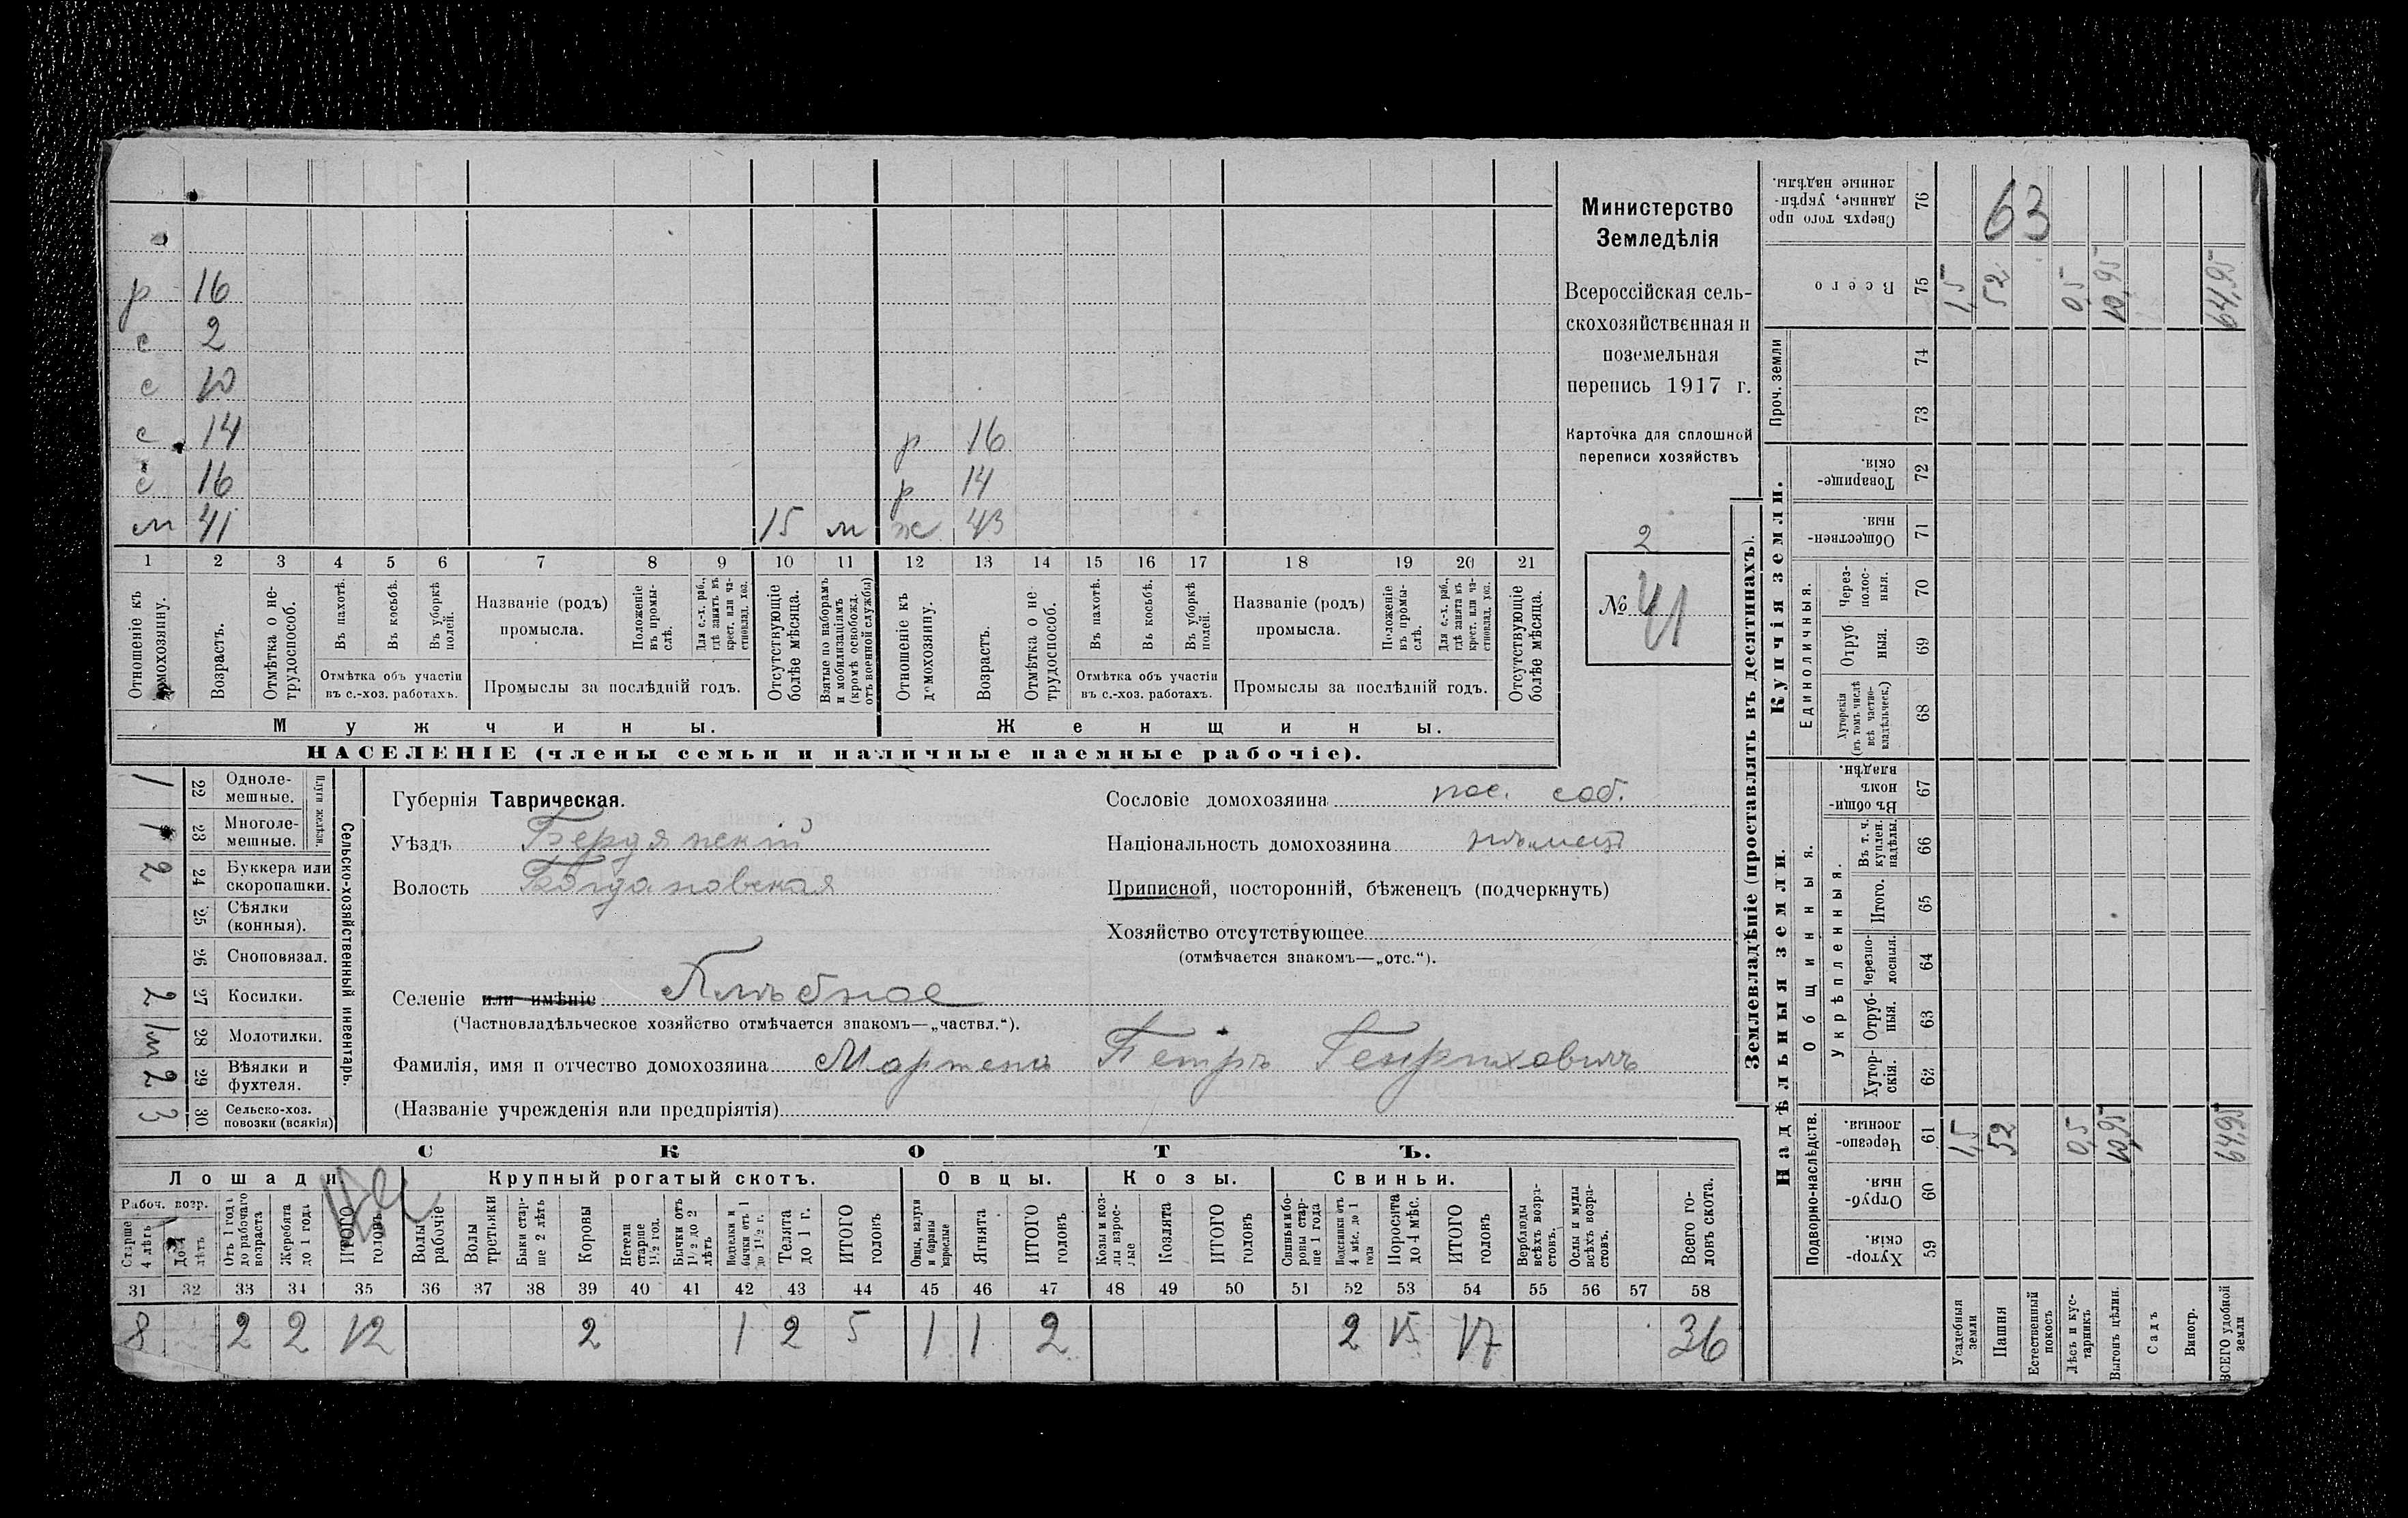 р 16
с 2
с 10
с 14
р 16
с 16
р 14
м 41 15 м ж 43
1 2 3 4 5 6 7 8 9 10 11 12 13 14 15 16 17 18 19 20 21
Отношеніе къ домохозяину.
Возрастъ.
Отмѣтка о не-
трудоспособ.
Въ пахотѣ.
Въ косьбѣ.
Въ уборкѣ
полей.
Отмѣтка объ участіи
въ с.-хоз. работахъ.
Названіе (родъ)
промысла.
Положеніе
въ промы-
слѣ.
Для с.-х. раб.,
гдѣ занятъ въ
крест. или ча-
стновлад. хоз.
Промыслы за послѣдній годъ.
Отсутствующіе
болѣе мѣсяца.
Взятые по наборамъ
и мобилизаціямъ
(кромѣ освобожд.
отъ военной службы)
Отношеніе къ
домохозяину.
Возрастъ.
Отмѣтка о не-
трудоспособ.
Въ пахотѣ.
Въ косьбѣ.
Въ уборкѣ
полей.
Отмѣтка объ участіи
въ с.-хоз. работахъ.
Названіе (родъ)
промысла.
Положеніе
въ промы-
слѣ.
Для с.-х. раб.,
гдѣ занята въ
крест. или ча-
стновлад. хоз.
Промыслы за послѣдній годъ.
Отсутствующіе
болѣе мѣсяца.
Мужчины. Женщины.
НАСЕЛЕНІЕ (члены семьи и наличные наемные рабочіе).
Министерство
Земледѣлія
Всероссійская сель-
скохозяйственная и
поземельная
перепись 1917 г.
Карточка для сплошной
переписи хозяйствъ
2
№ 41
Сельско-хозяйственный инвентарь.
Плуги желѣзн.
1 22 Одноле-
мешные.
1 23 Многоле-
мешные.
2 24 Буккера или
скоропашки.
25 Сѣялки
(конныя).
26 Сноповязал.
2 27 Косилки.
28 Молотилки.
2 29 Вѣялки и
фухтеля.
3 30 Сельско-хоз.
повозки (всякія)
Губернія Таврическая.
Уѣздъ Бердянскій
Волость Богдановская
Селеніе или имѣніе
(Частновладѣльческое хозяйство отмѣчается знакомъ—„частвл.“).
Фамилія, имя и отчество домохозяина Мартенсъ Петръ Генриховичъ
(Названіе учрежденія или предпріятія)
Сословіе домохозяина пос. соб.
Національность домохозяина нѣмецъ
Приписной, посторонній, бѣженецъ (подчеркнуть)
Хозяйство отсутствующее
(отмѣчается знакомъ—„отс.“).
СКОТЪ.
Лошади Крупный рогатый скотъ. Овцы. Козы. Свиньи.
Рабоч. возр.
Старше
4 лѣтъ
До 4
лѣтъ
Отъ 1 года
до рабочаго
возраста
Жеребята
до 1 года
ИТОГО
головъ
Волы
рабочіе
Волы
третьяки
Быки стар-
ше 2 лѣтъ
Коровы
Нетели
старше
1½ год.
Бычки отъ
1½ до 2
лѣтъ
Подтелки и
бычки отъ 1
до 1½ г.
Телята
до 1 г.
ИТОГО
головъ
Овцы, валухи
и бараны
взрослые
Ягнята
ИТОГО
головъ
Козы и коз-
лы взрос-
лые
Козлята
ИТОГО
головъ
Свиньи и бо-
ровы стар-
ше 1 года
Подсвинки отъ
4 мѣс. до 1
года
Поросята
до 4 мѣс.
ИТОГО
головъ
Верблюды
всѣхъ возра-
стовъ.
Ослы и мулы
всѣхъ возра-
стовъ.
Всего го-
ловъ скота.
31 32 33 34 35 36 37 38 39 40 41 42 43 44 45 46 47 48 49 50 51 52 53 54 55 56 57 58
8 2 2 12 2 1 2 5 1 1 2 2 15 17 36
Землевладѣніе (проставлять въ десятинахъ).
Купчія земли.
Надѣльныя земли.
Сверхъ того про
данные, укрѣп-
ленные надѣлы. 76
63
Всего 75 1,5 52 0,5 10,95 64,95
Проч. земли
74
73
Товарище-
скія. 72
Обществен-
ныя. 71
Единоличныя.
Через-
полос-
ныя. 70
Отруб
ныя. 69
Хуторскія
(въ томъ числѣ
всѣ частно-
владѣльческ.) 68
Общинныя.
Въ общи-
номъ
владѣн. 67
Укрѣпленныя.
Въ т. ч.
куплен.
надѣлы. 66
Итого. 65
Черезпо-
лосныя. 64
Отруб-
ныя. 63
Хутор-
скія. 62
Подворно-наслѣдств.
Черезпо-
лосныя. 61 1,5 52 0,5 10,95 64,95
Отруб-
ныя. 60
Хутор-
скія. 59
Усадебныя
земли
Пашня
Естественный
покосъ
Лѣсъ и кус-
тарникъ
Выгонъ цѣлин.
Садъ
Виногр.
ВСЕГО удобной
земли